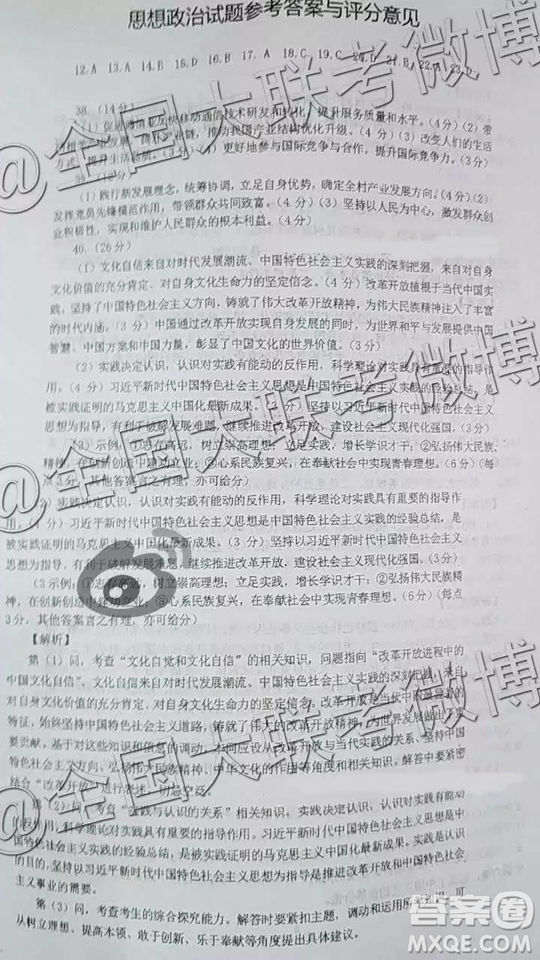 思想政治试题参考答案与评分意见
12.A 13.A 14.B 15.D 16.B 17.A 18.C 19.C 20.D 21.B 22.A 23.D
38.(14分)
(1)促进 技术研发和转化,提升服务质量和水平。(4分)(2)带
推动我国产业结构优化升级。(4分)(3)改变人们的生活
(4)更好地参与国际竞争与合作,提升国际竞争力。(3分)
39.(12分)
(1)践行新发展理念,统筹协调,立足自身优势,确定全村产业发展方向。(4分)(2)
发挥党员先锋模范作用,带领群众共同致富。(4分)(3)坚持以人民为中心,激发群众创
业积极性,实现和维护人民群众的根本利益。(4分)
40.(26分)
(1)文化自信来自对时代发展潮流、中国特色社会主义实践的深刻把握,来自对自身
文化价值的充分肯定、对自身文化生命力的坚定信念。(4分)改革开放植根于当代中国实
践,坚持了中国特色社会主义方向,铸就了伟大改革开放精神,为伟大民族精神注入了丰富
的时代内涵。(3分)中国通过改革开放实现自身发展的同时,为世界和平与发展贡献中国
智慧、中国方案和中国力量,彰显了中国文化的世界价值。(3分)
(2)实践决定认识,认识对实践有能动的反作用,科学理论对实践具有重要的指导作
用。(4分)习近平新时代中国特色社会主义思想是中国特色社会主义实践的经验总结,是
被实践证明的马克思主义中国化最新成果。(3分)坚持以习近平新时代中国特色社会主义
思想为指导,有利于破解发展难题,继续推进改革开放、建设社会主义现代化强国。(3分)
(3)示例:①志在高远,树立崇高理想;立足实践,增长学识才干;②弘扬伟大民族
精神,在创新创造中建功立业;③心系民族复兴,在奉献社会中实现青春理想。(6分)
(每点3分,其他答案言之有理,亦可给分)
(2)实践决定认识,认识对实践有能动的反作用,科学理论对实践具有重要的指导作
用。(4分)习近平新时代中国特色社会主义思想是中国特色社会主义实践的经验总结,是
被实践证明的马克思主义中国化最新成果。(3分)坚持以习近平新时代中国特色社会主义
思想为指导,有利于破解发展难题,继续推进改革开放、建设社会主义现代化强国。(3分)
(3)示例:①志在高远,树立崇高理想;立足实践,增长学识才干;②弘扬伟大民族精
神,在创新创造中建功立业;③心系民族复兴,在奉献社会中实现青春理想。(6分)(每点
3分,其他答案言之有理,亦可给分)
【解析】
第(1)问,考查“文化自觉和文化自信”的相关知识,问题指向“改革开放进程中的
中国文化自信”。文化自信来自对时代发展潮流、中国特色社会主义实践的深刻把握,来自对自身
文化价值的充分肯定、对自身文化生命力的坚定信念。改革开放是当代中国最显著的
特征,始终坚持中国特色社会主义道路,铸就了伟大改革开放精神,为世界和平与发展作出
贡献。基于对这些知识和信息的调动,本问应设从改革开放与当代实践的关系、中国特
色社会主义方向、弘扬伟大民族精神、中华文化的作用等角度和相关知识。解答中要紧密
结合“改革开放”进行表述,切忌空泛
第(2)问,考查“实践与认识的关系”相关知识,实践决定认识,认识对实践有能动
的反作用,科学理论对实践具有重要的指导作用。习近平新时代中国特色社会主义思想是中国特色
社会主义实践的经验总结,是被实践证明的马克思主义中国化最新成果。实践是认识
的目的,坚持以习近平新时代中国特色社会主义思想为指导是推进改革开放和中国特色社会
主义事业的需要。
第(3)问,考查考生的综合探究能力。解答时要紧扣主题,调动和运用所学知识,可
从树立理想、提高本领、敢于创新、乐于奉献等角度提出具体建议。
@全国大联考微博
@全国大联考微博
@全国大联考微博
答案圈
MXQE.COM